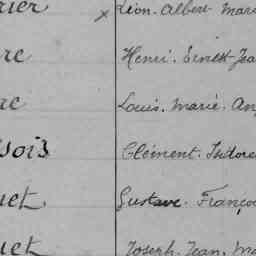 rier × Léon. Albert. Mari
re Henri. Ernest. Jea
re Louis. Marie. An
sois Clément. Isidore
uet Gustave. Franço
uet Joseph. Jean. Ma